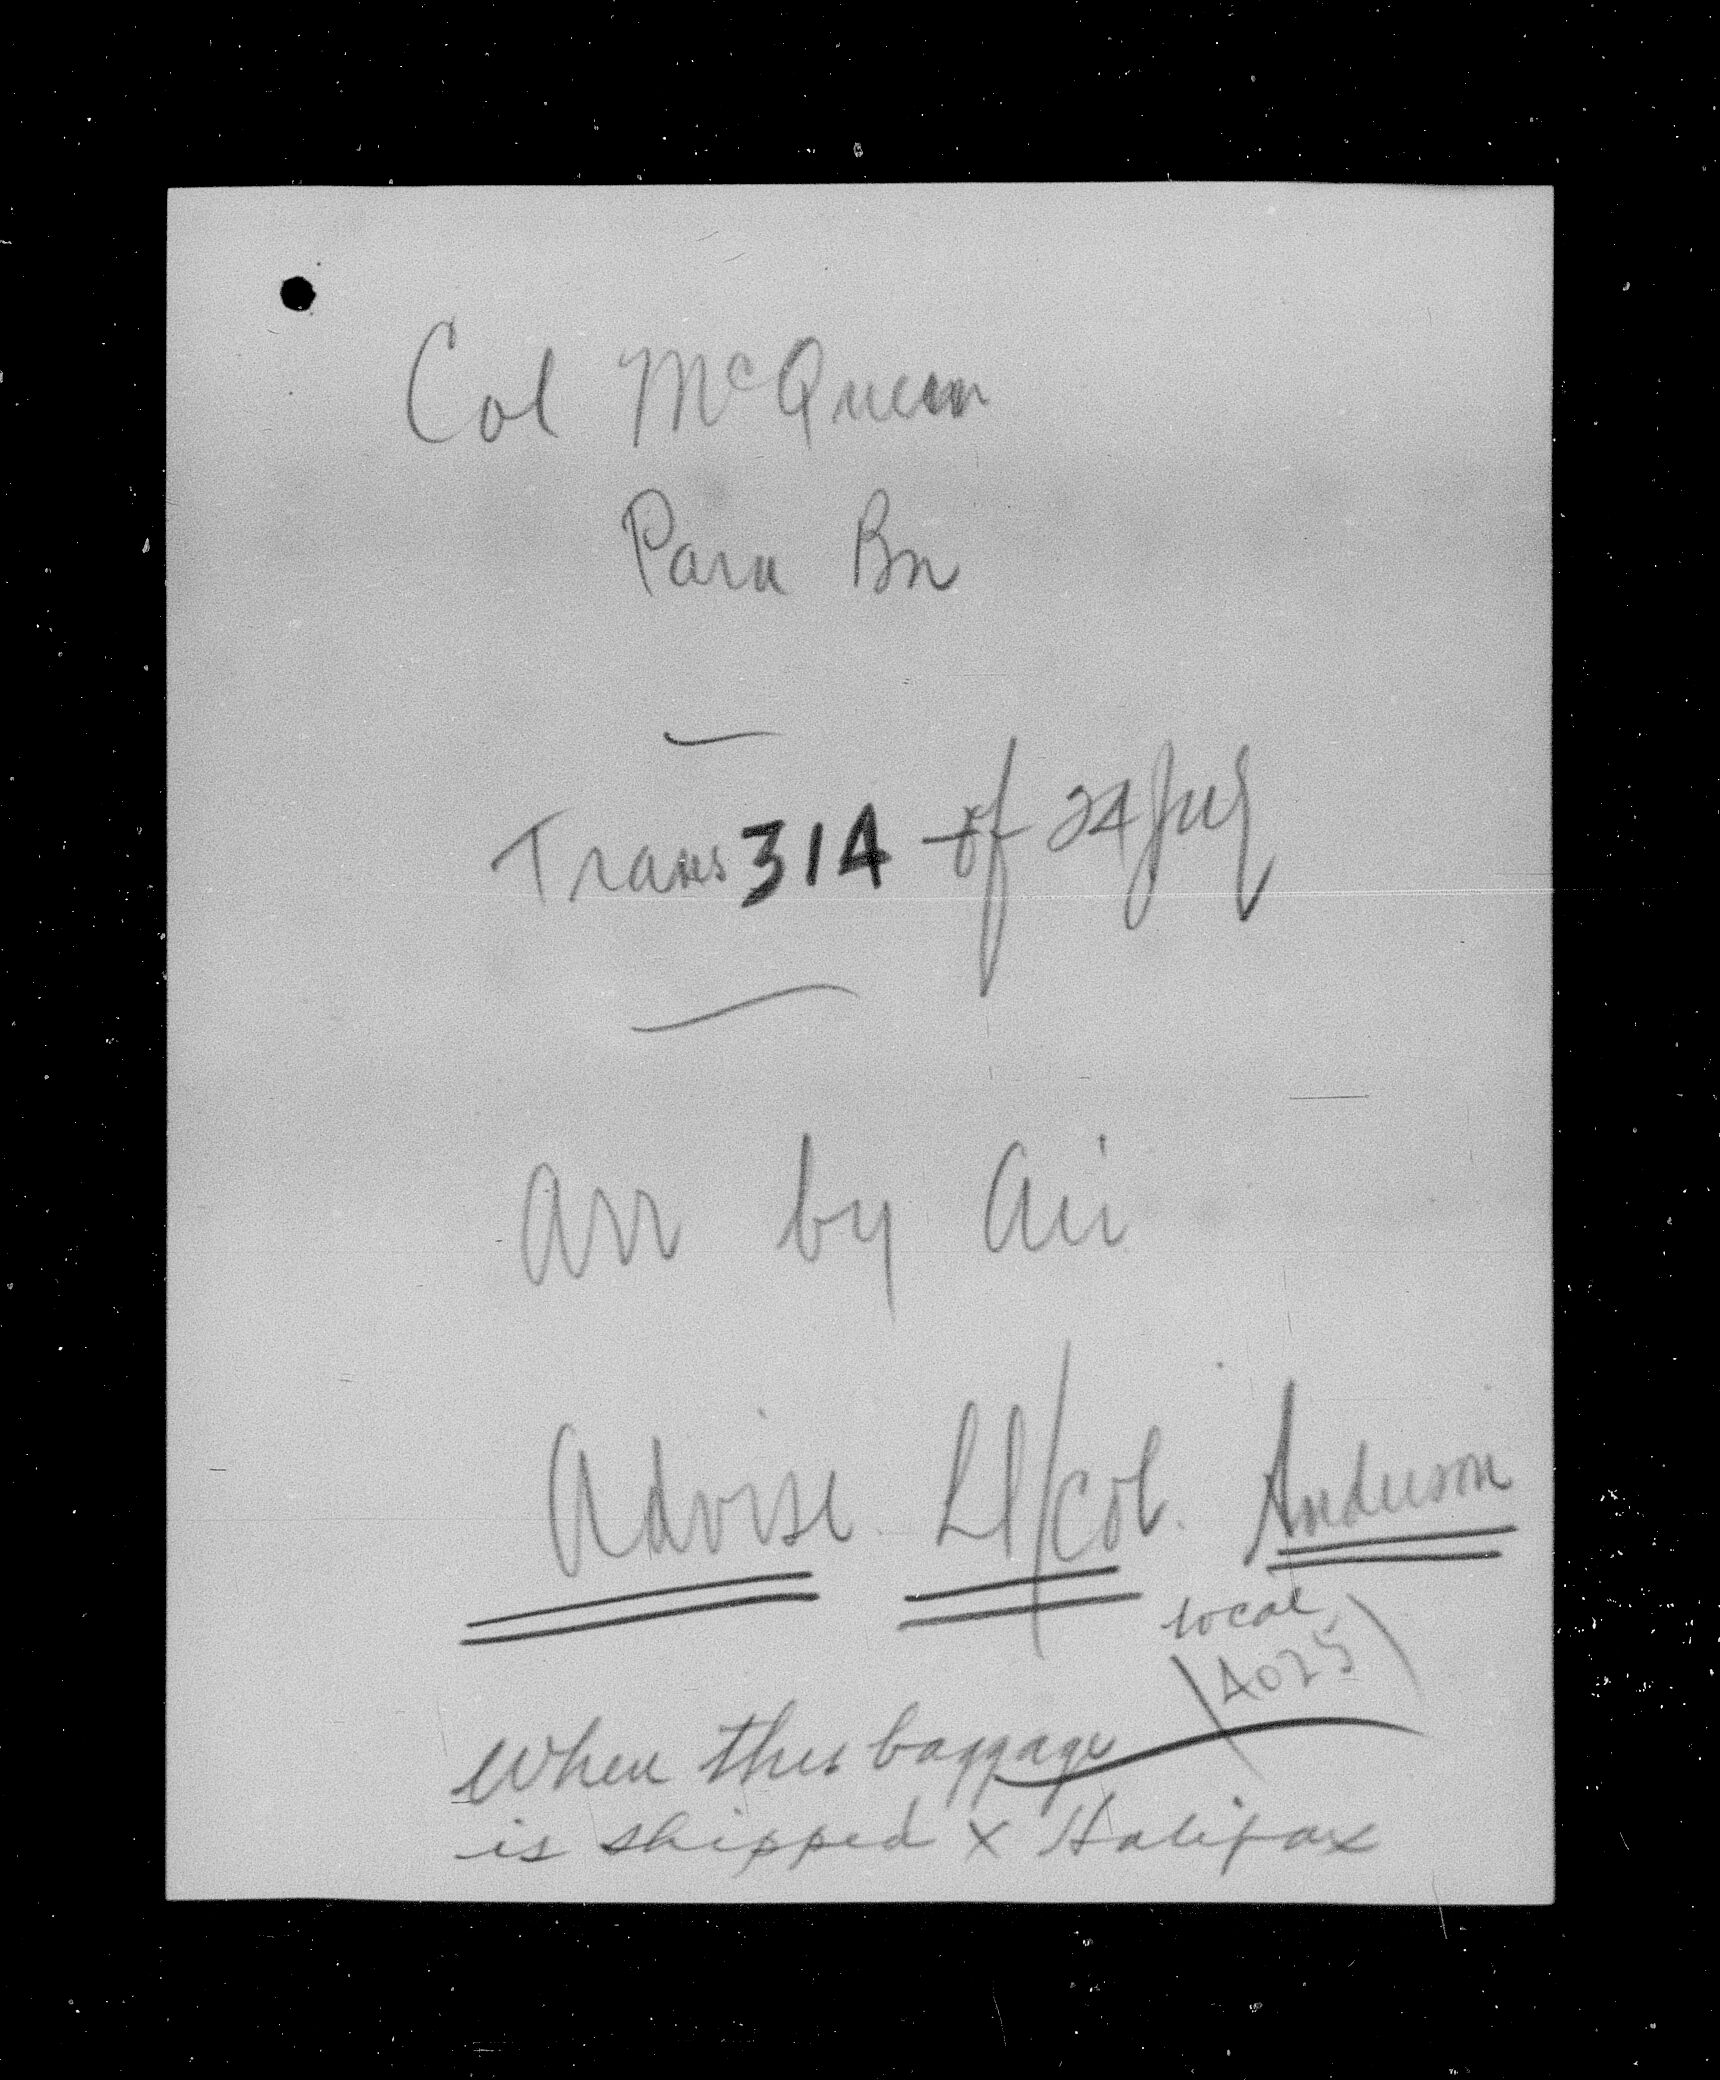 Col McQueen
Para Bn
Trans 314 of 24 July
arr by air
Advise Lt/Col. Anderson
local
4025
When this baggage
is shipped x Halifax